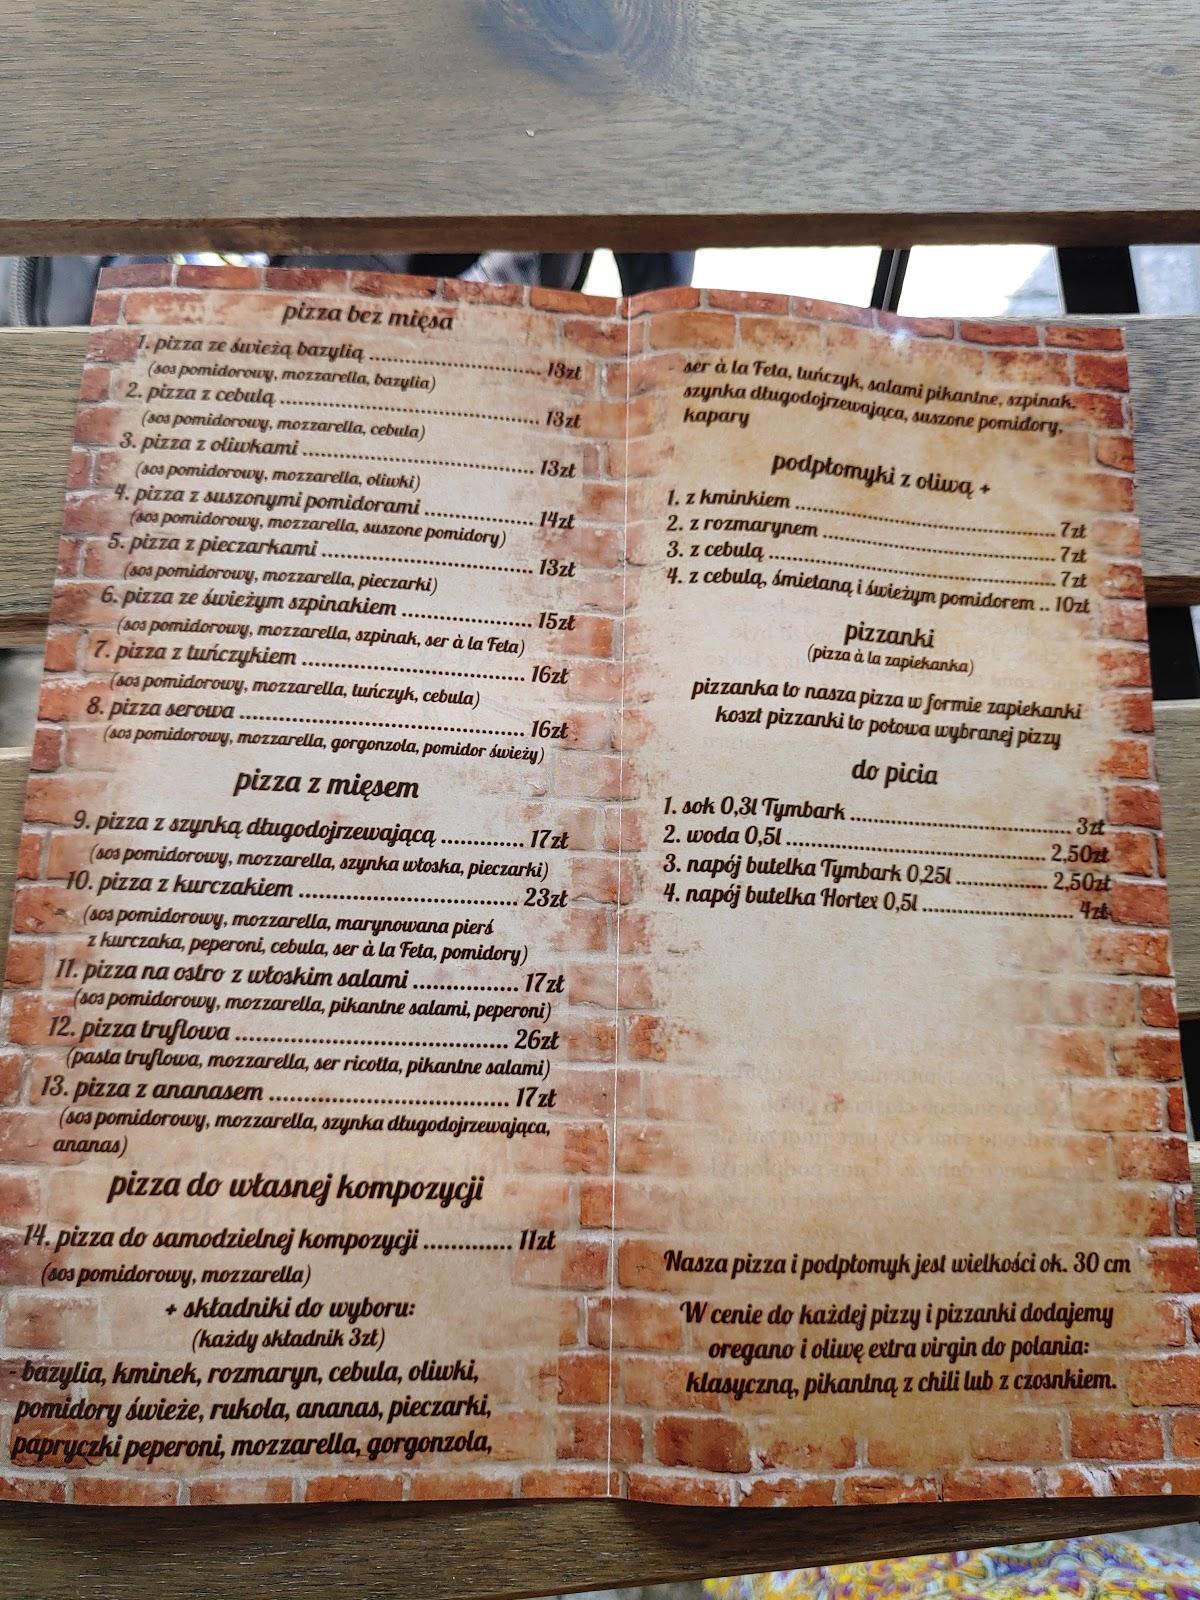 pizza bez mięsa
1. pizza ze świeżą bazylią ........................ 13zł
(sos pomidorowy, mozzarella, bazylia)
2. pizza z cebulą ........................................ 13zł
(sos pomidorowy, mozzarella, cebula)
3. pizza z oliwkami .................................... 13zł
(sos pomidorowy, mozzarella, oliwki)
4. pizza z suszonymi pomidorami ................ 14zł
(sos pomidorowy, mozzarella, suszone pomidory)
5. pizza z pieczarkami ................................ 13zł
(sos pomidorowy, mozzarella, pieczarki)
6. pizza ze świeżym szpinakiem .................... 15zł
(sos pomidorowy, mozzarella, szpinak, ser à la Feta)
7. pizza z tuńczykiem .................................. 16zł
(sos pomidorowy, mozzarella, tuńczyk, cebula)
8. pizza serowa ............................................ 16zł
(sos pomidorowy, mozzarella, gorgonzola, pomidor świeży)
pizza z mięsem
9. pizza z szynką długodojrzewającą ............ 17zł
(sos pomidorowy, mozzarella, szynka włoska, pieczarki)
10. pizza z kurczakiem ................................ 23zł
(sos pomidorowy, mozzarella, marynowana pierś
z kurczaka, peperoni, cebula, ser à la Feta, pomidory)
11. pizza na ostro z włoskim salami ................ 17zł
(sos pomidorowy, mozzarella, pikantne salami, peperoni)
12. pizza truflowa ........................................ 26zł
(pasta truflowa, mozzarella, ser ricotta, pikantne salami)
13. pizza z ananasem .................................... 17zł
(sos pomidorowy, mozzarella, szynka długodojrzewająca,
ananas)
pizza do własnej kompozycji
14. pizza do samodzielnej kompozycji ............. 11zł
(sos pomidorowy, mozzarella)
+ składniki do wyboru:
(każdy składnik 3zł)
- bazylia, kminek, rozmaryn, cebula, oliwki,
pomidory świeże, rukola, ananas, pieczarki,
papryczki peperoni, mozzarella, gorgonzola,
ser à la Feta, tuńczyk, salami pikantne, szpinak,
szynka długodojrzewająca, suszone pomidory,
kapary
podpłomyki z oliwą +
1. z kminkiem ........................................ 7zł
2. z rozmarynem .................................... 7zł
3. z cebulą ............................................ 7zł
4. z cebulą, śmietaną i świeżym pomidorem .. 10zł
pizzanki
(pizza à la zapiekanka)
pizzanka to nasza pizza w formie zapiekanki
koszt pizzanki to połowa wybranej pizzy
do picia
1. sok 0,3l Tymbark .................................. 3zł
2. woda 0,5l ........................................ 2,50zł
3. napój butelka Tymbark 0,25l .............. 2,50zł
4. napój butelka Hortex 0,5l ...................... 4zł
Nasza pizza i podpłomyk jest wielkości ok. 30 cm
W cenie do każdej pizzy i pizzanki dodajemy
oregano i oliwę extra virgin do polania:
klasyczną, pikantną z chili lub z czosnkiem.